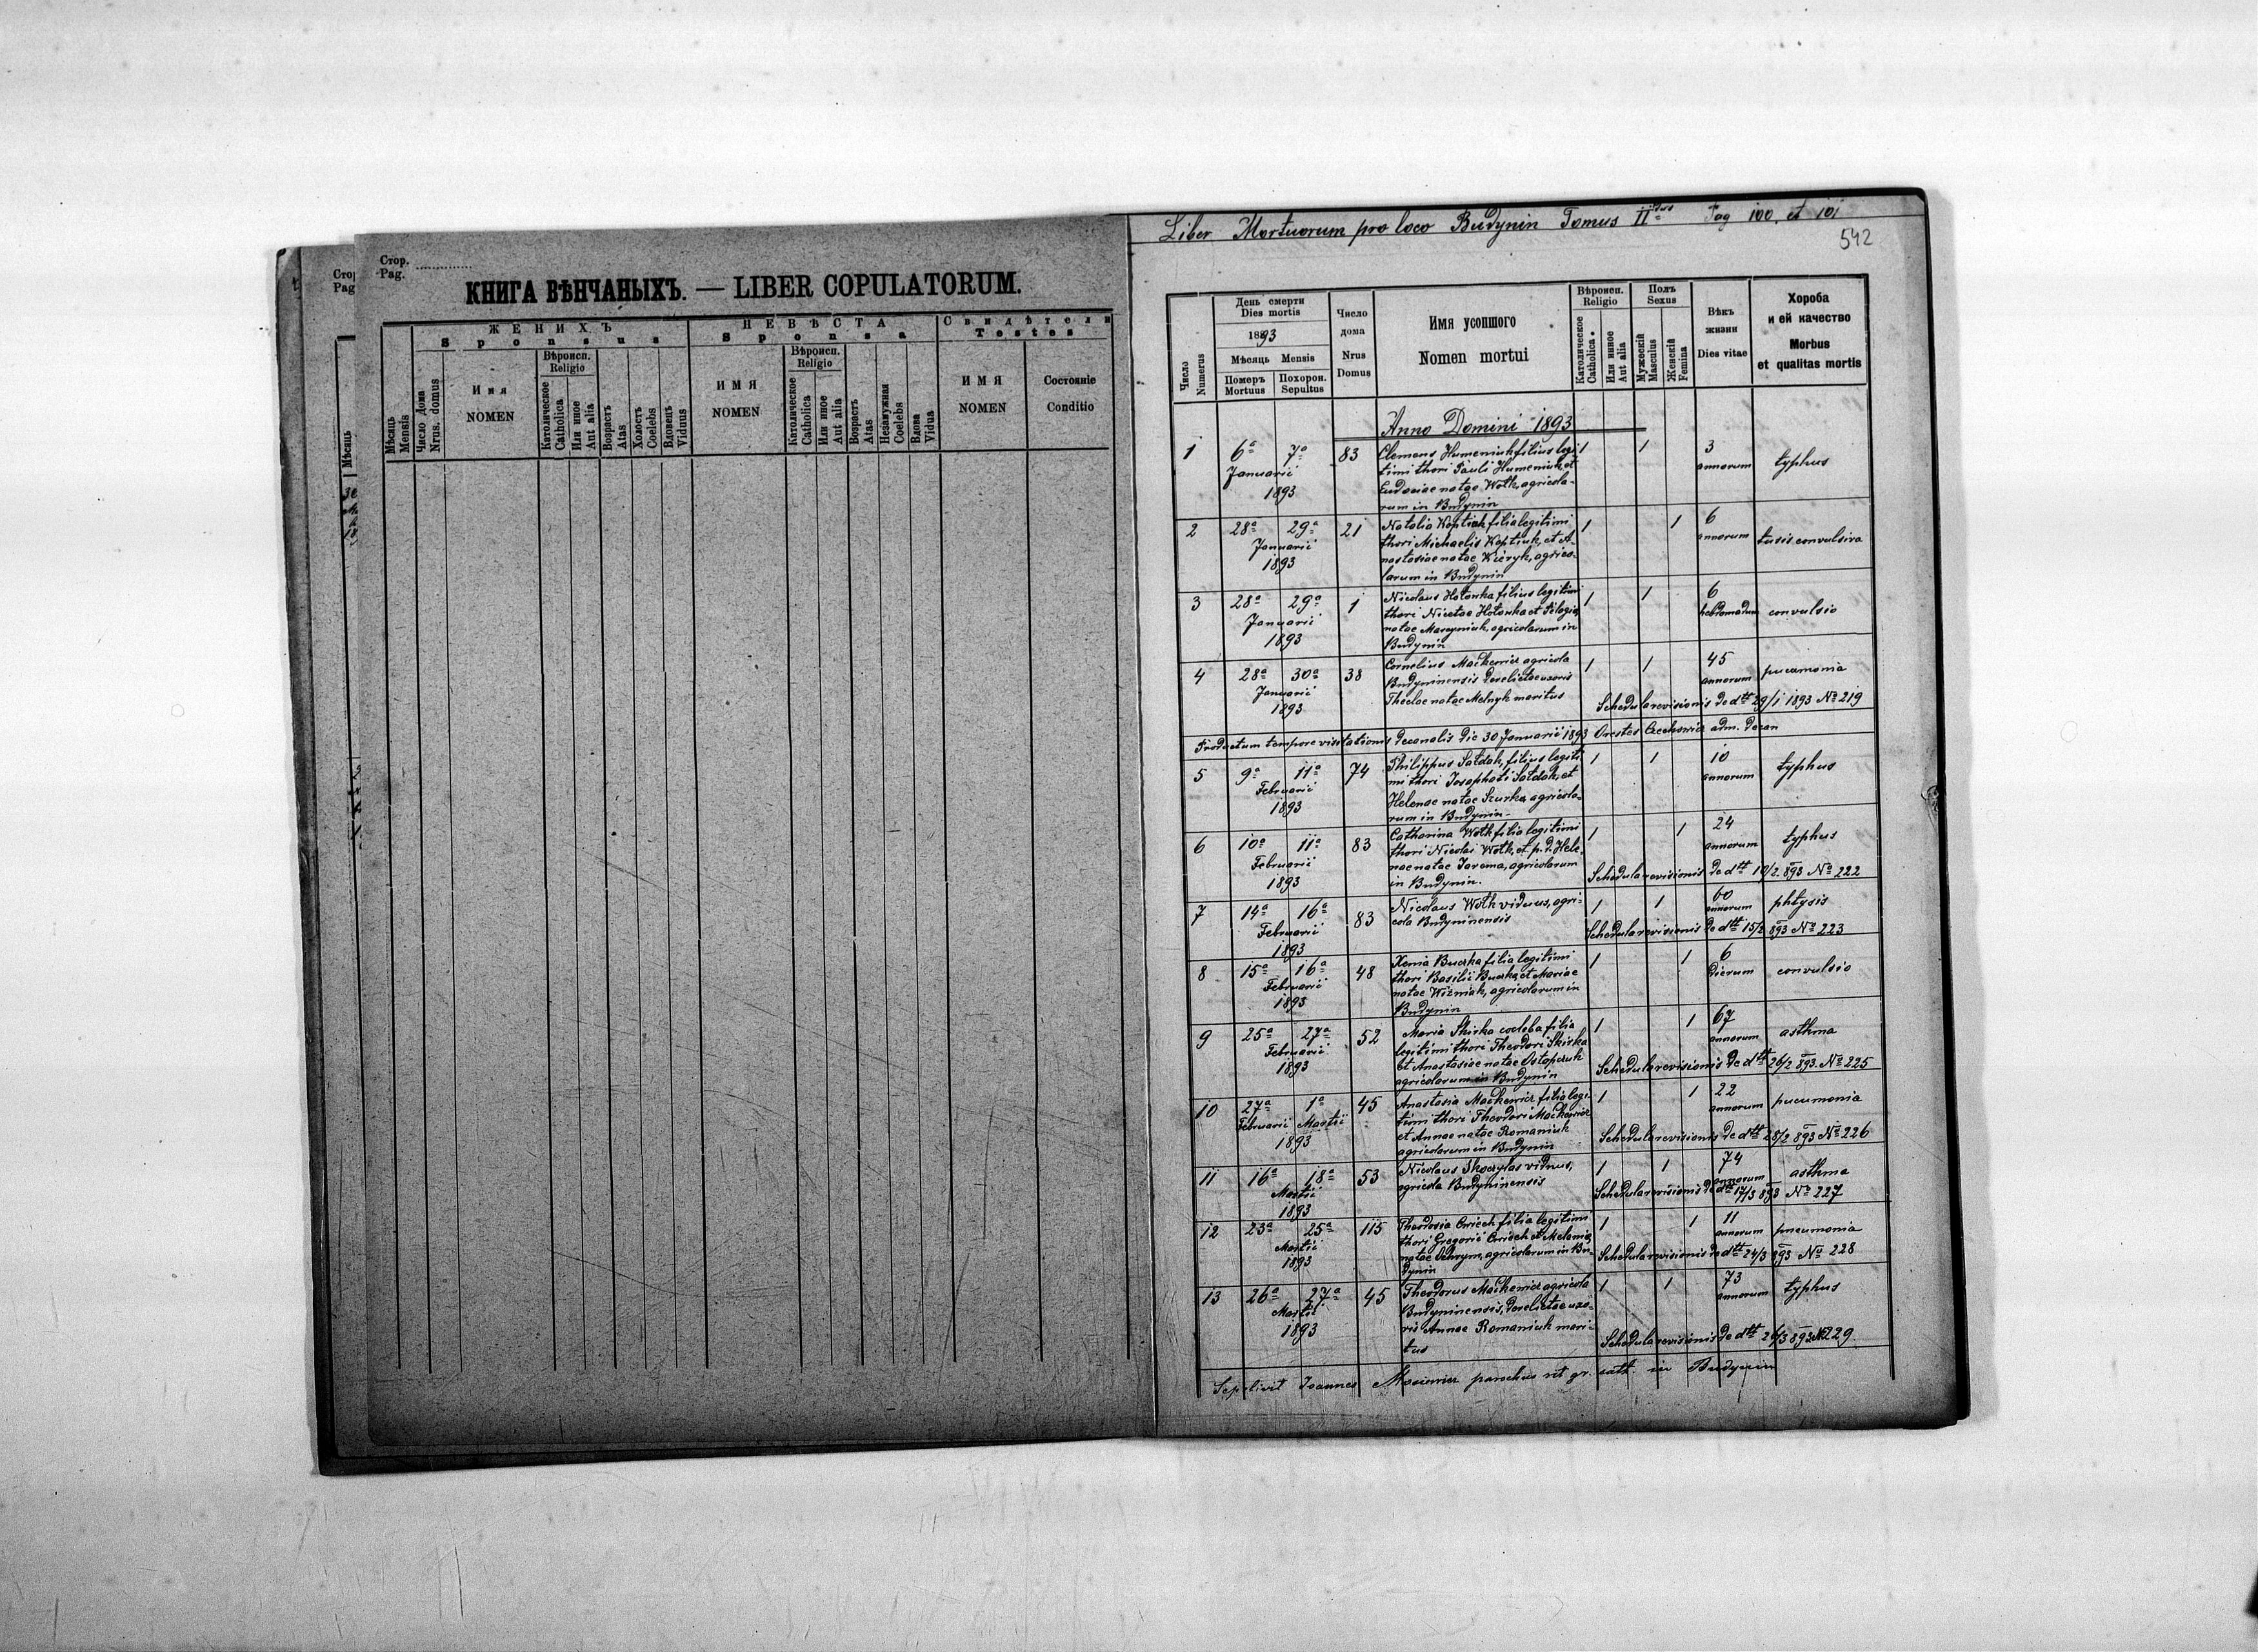 Стор.
Pag.
КНИГА ВѢНЧАНЫХЪ. — LIBER COPULATORUM.
Мѣсяць
Mensis
Число дома
Nrus. domus
ЖЕНИХЪ
Sponsus
Имя
NOMEN
Вѣроисп.
Religio
Католическое
Catholica
Или иное
Aut alia
Возрасть
Atas
Холость
Coelebs
Вдовець
Viduus
НЕВѢСТА
Sponsa
ИМЯ
NOMEN
Вѣроисп.
Religio
Католическое
Catholica
Или иное
Aut alia
Возрасть
Atas
Незамужная
Coelebs
Вдова
Vidua
Свидѣтели
Testes
ИМЯ
NOMEN
Состояніе
Conditio
Стор
Pag
Мѣсяць
Liber Mortuorum pro loco Budynin Tomus II Pag 100 et 101
542
Число
Numerus
День смерти
Dies mortis
1893
Мѣсяць Mensis
Померъ
Mortuus
Похорон.
Sepultus
Число
дома
Nrus
Domus
Имя усопшого
Nomen mortui
Вѣроисп.
Religio
Католическое
Catholica
Или иное
Aut alia
Полъ
Sexus
Мужескій
Masculus
Женскій
Femina
Вѣкъ
жизни
Dies vitae
Хороба
и ей качество
Morbus
et qualitas mortis
Anno Domini 1893
1 6a 7a Januarii 1893 83
Clemens Humeniuk filius legi-
timi thori Pauli Humeniuk et
Eudociae natae Wotk, agricola-
rum in Budynin
1 1 3 annorum typhus
2 28a 29a Januarii 1893 21
Natalia Koptiuk filia legitimi
thori Michaelis Koptiuk, et A-
nastasiae natae Kieryk, agrico-
larum in Budynin
1 1 6 annorum tusis convulsiva
3 28a 29a Januarii 1893 1
Nicolaus Hotonka filius legitimi
thori Nicetae Hotonka et Pelagiae
natae Marcyniuk, agricolarum in
Budynin
1 1 6 hebdomadum convulsio
4 28a 30a Januarii 1893 38
Cornelius Mackewicz agricola
Budyninensis derelictae uxoris
Theclae natae Melnyk maritus
1 1 45 annorum pneumonia
Schedula revisionis de dtt 29/1 1893 No 219
Productum tempore visitationis decanalis die 30 Januarii 1893 Orestes Czechowicz adm. decan
5 9a 11a Februarii 1893 74
Philippus Sołdak, filius legiti
mi thori Josaphati Sołdak, et
Helenae natae Szurka agricola-
rum in Budynin
1 1 10 annorum typhus
6 10a 11a Februarii 1893 83
Catharina Wotk filia legitimi
thori Nicolai Wotk, et p. d. Hele-
nae natae Jarema, agricolarum
in Budynin.
1 1 24 annorum typhus
Schedula revisionis de dtt 10/2 893 No 222
7 14a 16a Februarii 1893 83
Nicolaus Wotk viduus, agri-
cola Budyninensis
1 1 60 annorum phtysis
Schedula revisionis de dtt 15/2 893 No 223
8 15a 16a Februarii 1893 48
Xenia Buczka filia legitimi
thori Basilii Buczka et Mariae
natae Wizniak, agricolarum in
Budynin
1 1 6 dierum convulsio
9 25a 27a Februarii 1893 52
Maria Skirka coeleba filia
legitimi thori Theodori Skirka
et Anastasiae natae Ostapczuk
agricolarum in Budynin
1 1 67 annorum asthma
Schedula revisionis de dtt 26/2 893 No 225
10 27a Februarii 1a Martii 1893 45
Anastasia Mackewicz filia legi-
timi thori Theodori Mackewicz
et Annae natae Romaniuk
agricolarum in Budynin
1 1 22 annorum pneumonia
Schedula revisionis de dtt 28/2 893 No 226
11 16a 18a Martii 1893 53
Nicolaus Skoczylas viduus,
agricola Budyninensis
1 1 74 annorum asthma
Schedula revisionis de dtt 17/3 893 No 227
12 23a 25a Martii 1893 115
Theodosia filia legitimi
thori Gregorii et Melaniae
natae Ochrym, agricolarum in Bu-
dynin
1 1 11 annorum pneumonia
Schedula revisionis de dtt 24/3 893 No 228
13 26a 27a Martii 1893 45
Theodorus Mackewicz agricola
Budyninensis, derelictae uxo-
ris Annae Romaniuk mari-
tus
1 1 73 annorum typhus
Schedula revisionis de dtt 26/3 893 No 229
Sepelivit Joannes parochus rit gr. cath. in Budynin